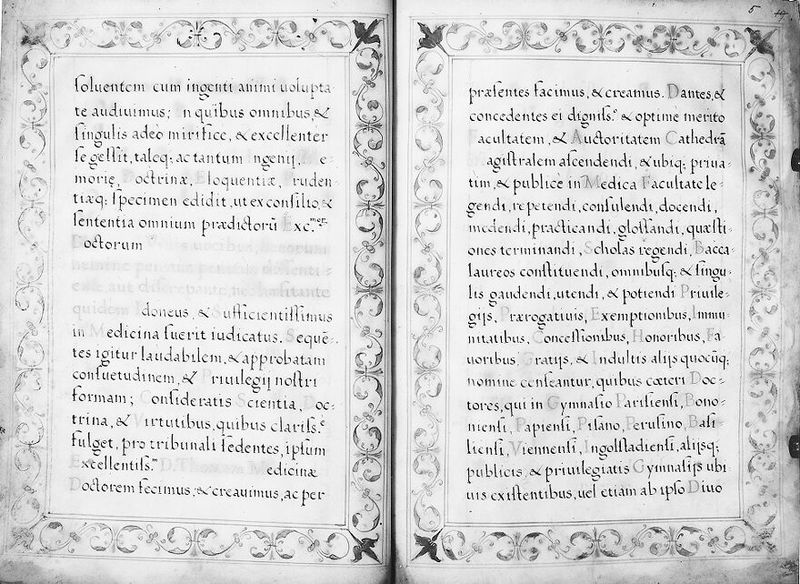 soluentem cum ingenti animi uolupta
te audiuimus; In quibus omnibus, &
singulis adeo mirifice, & excellenter
se gessit, taleq; ac tantum Ingenij, Me-
moriȩ, Doctrinæ, Eloquentiæ, Pruden-
tiæq; specimen edidit, ut ex consilio, &
sententia omnium prædictorũ Exc.mor.
Doctorum
nemine
quidem
doneus, & Sufficientissimus
in Medicina fuerit iudicatus. Sequẽ-
tes igitur laudabilem, & approbatam
consuetudinem, & Priuilegij nostri
formam; Consideratis Scientia, Doc-
trina, & Virtutibus, quibus clariss.e
fulget, pro tribunali sedentes, ipsum
Excellentiss.m D. Thomam Medicinæ
Doctorem fecimus, & creauimus, ac per
5
præsentes facimus, & creamus. Dantes, &
concedentes ei digniss.e & optime merito
Facultatem, & Auctoritatem Cathedrã
agistralem ascendendi, & ubiq; priua-
tim, & publice in Medica Facultate le-
gendi, repetendi, consulendi, docendi,
medendi, practicandi, glossandi, quæsti-
ones terminandi, Scholas regendi, Bacca-
laureos constituendi, omnibusq; & singu-
lis gaudendi, utendi, & potiendi Priuile-
gijs, Prærogatiuis, Exemptionibus, Immu-
nitatibus, Concessionibus, Honoribus, Fa-
uoribus, Gratijs, & Indultis alijs quocũq;
nomine censeantur, quibus cæteri Doc-
tores, qui in Gymnasio Parisiensi, Bono-
niensi, Papiensi, Pisano, Perusino, Basi-
liensi, Viennensi, Ingolstadiensi, alijsq;
publicis, & priuilegiatis Gymnasijs ubi-
uis existentibus, uel etiam ab ipso Diuo